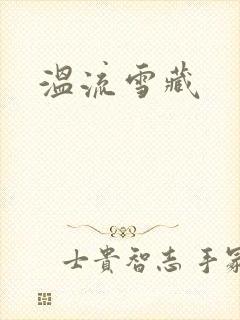 溫流雪藏
士貴智志手冢